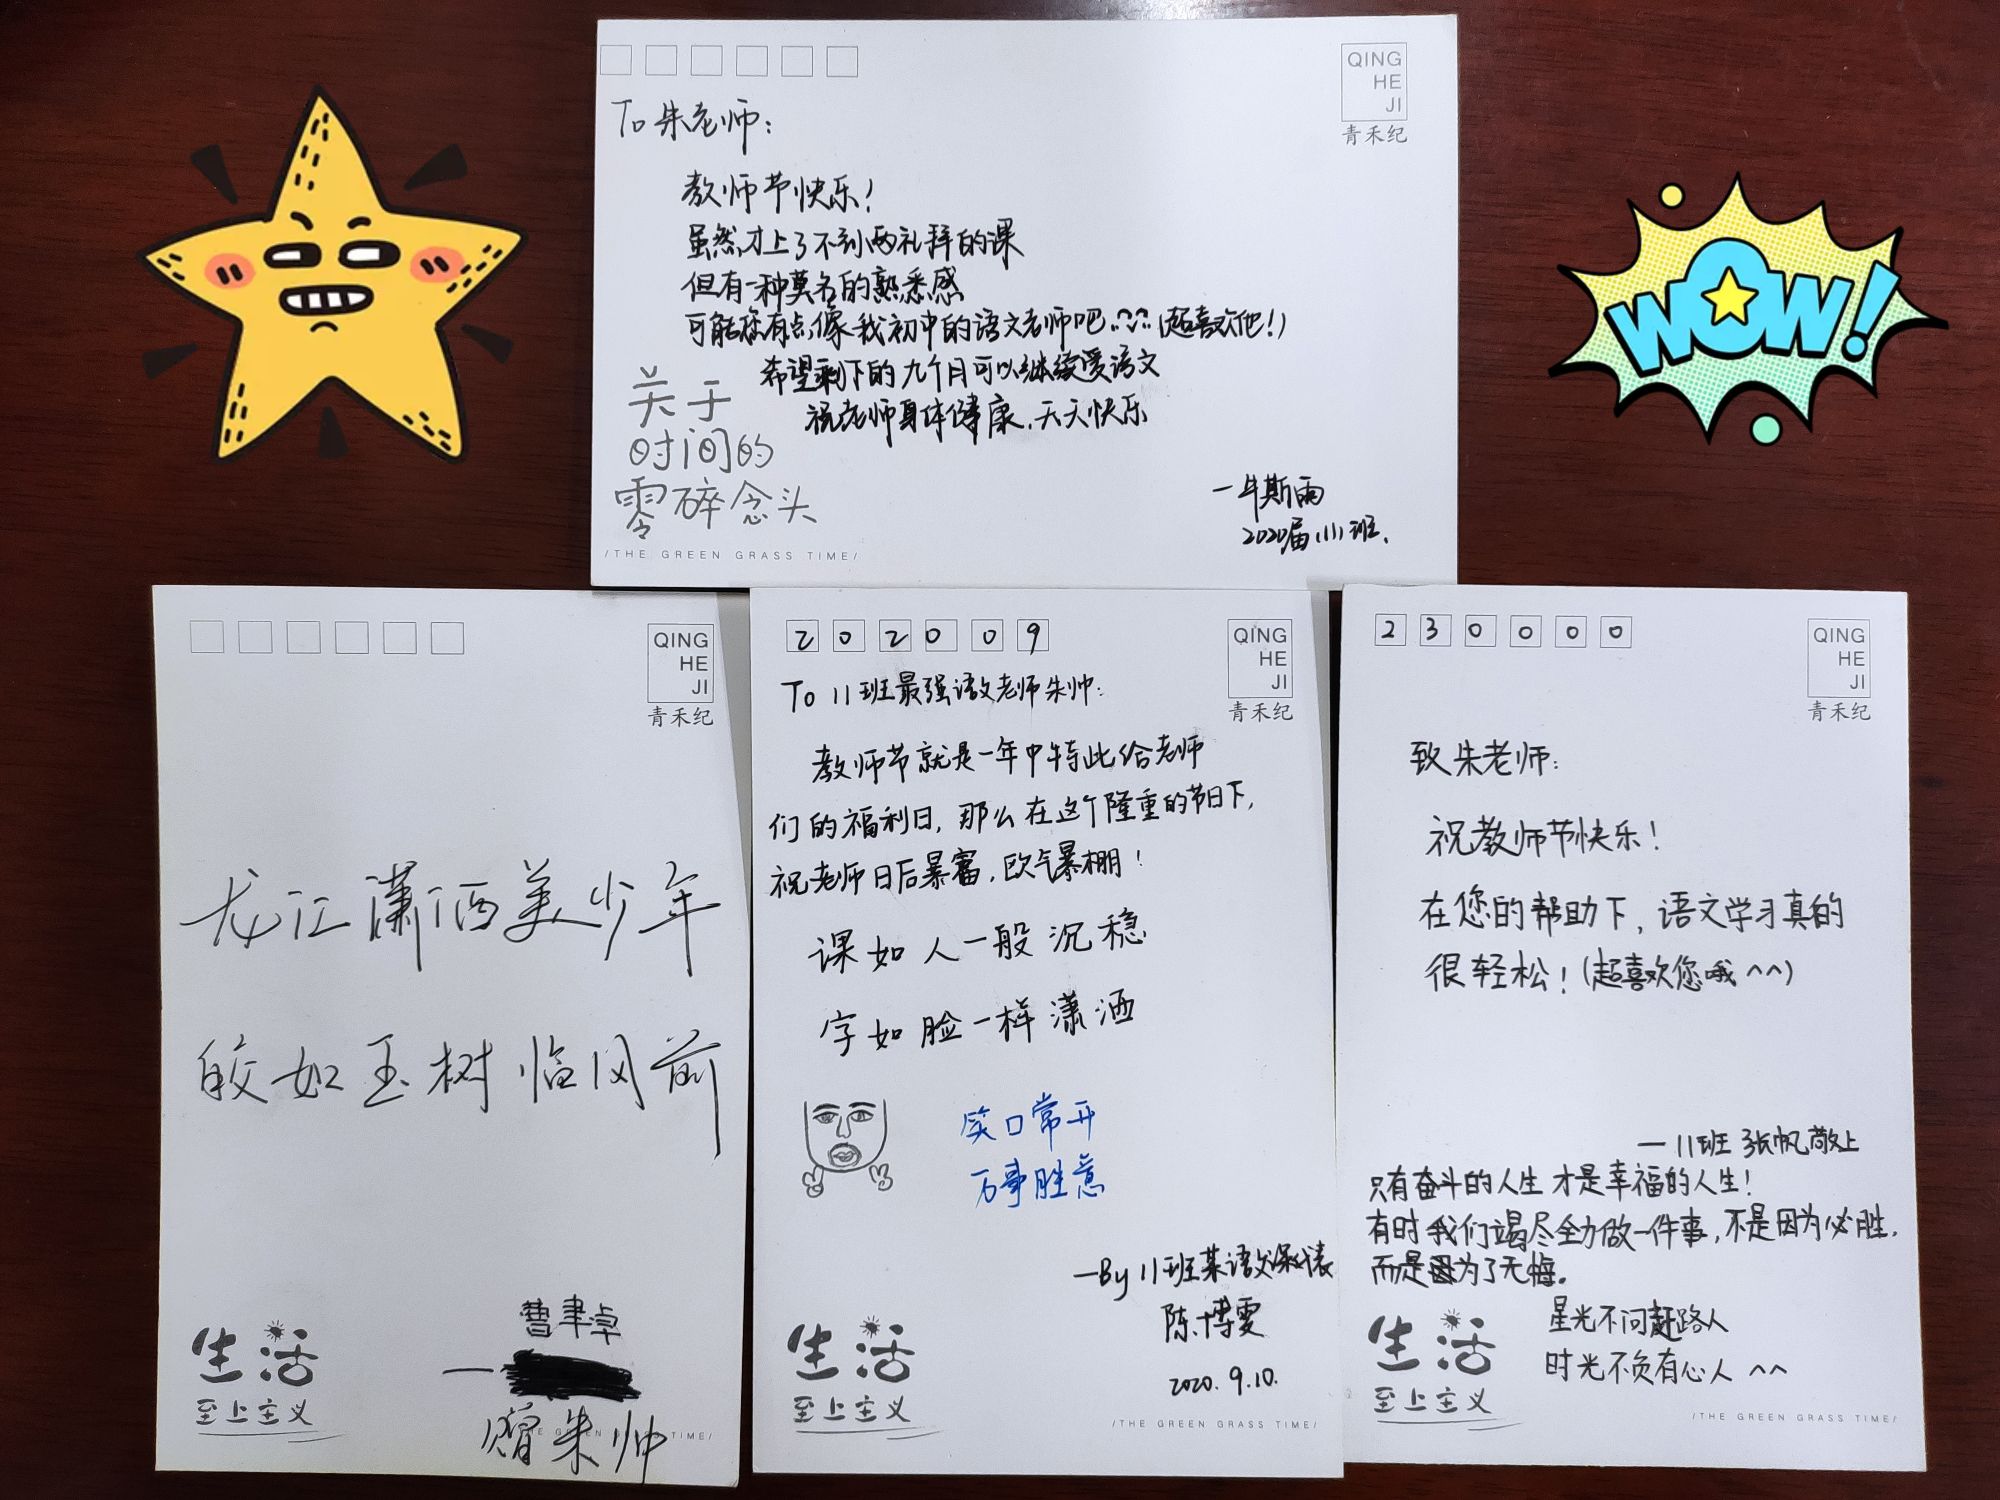 QING
HE
JI
青禾纪
To 朱老师：
教师节快乐！
虽然才上了不到两礼拜的课
但有一种莫名的熟悉感
可能您有点像我初中的语文老师吧(超喜欢他！)
希望剩下的九个月可以继续爱语文
祝老师身体健康，天天快乐
关于
时间的
零碎念头
—牛斯雨
2020届(11)班.
/THE GREEN GRASS TIME/
WOW!
QING
HE
JI
青禾纪
龙江潇洒美少年
皎如玉树临风前
曹聿卓
—
赠朱帅
生活
至上主义
TIME/
2 0 2 0 0 9
QING
HE
JI
青禾纪
To 11班最强语文老师朱帅：
教师节就是一年中特此给老师
们的福利日，那么在这个隆重的节日下，
祝老师日后暴富，欧气暴棚！
课如人一般沉稳
字如脸一样潇洒
笑口常开
万事胜意
—By 11班某语文课代表
陈博雯
2020.9.10.
生活
至上主义
/THE GREEN GRASS TIME/
2 3 0 0 0 0
QING
HE
JI
青禾纪
致朱老师：
祝教师节快乐！
在您的帮助下，语文学习真的
很轻松！(超喜欢您哦^^)
—11班 张帆敬上
只有奋斗的人生才是幸福的人生！
有时我们竭尽全力做一件事，不是因为必胜，
而是因为了无悔。
星光不问赶路人
时光不负有心人 ^^
生活
至上主义
/THE GREEN GRASS TIME/